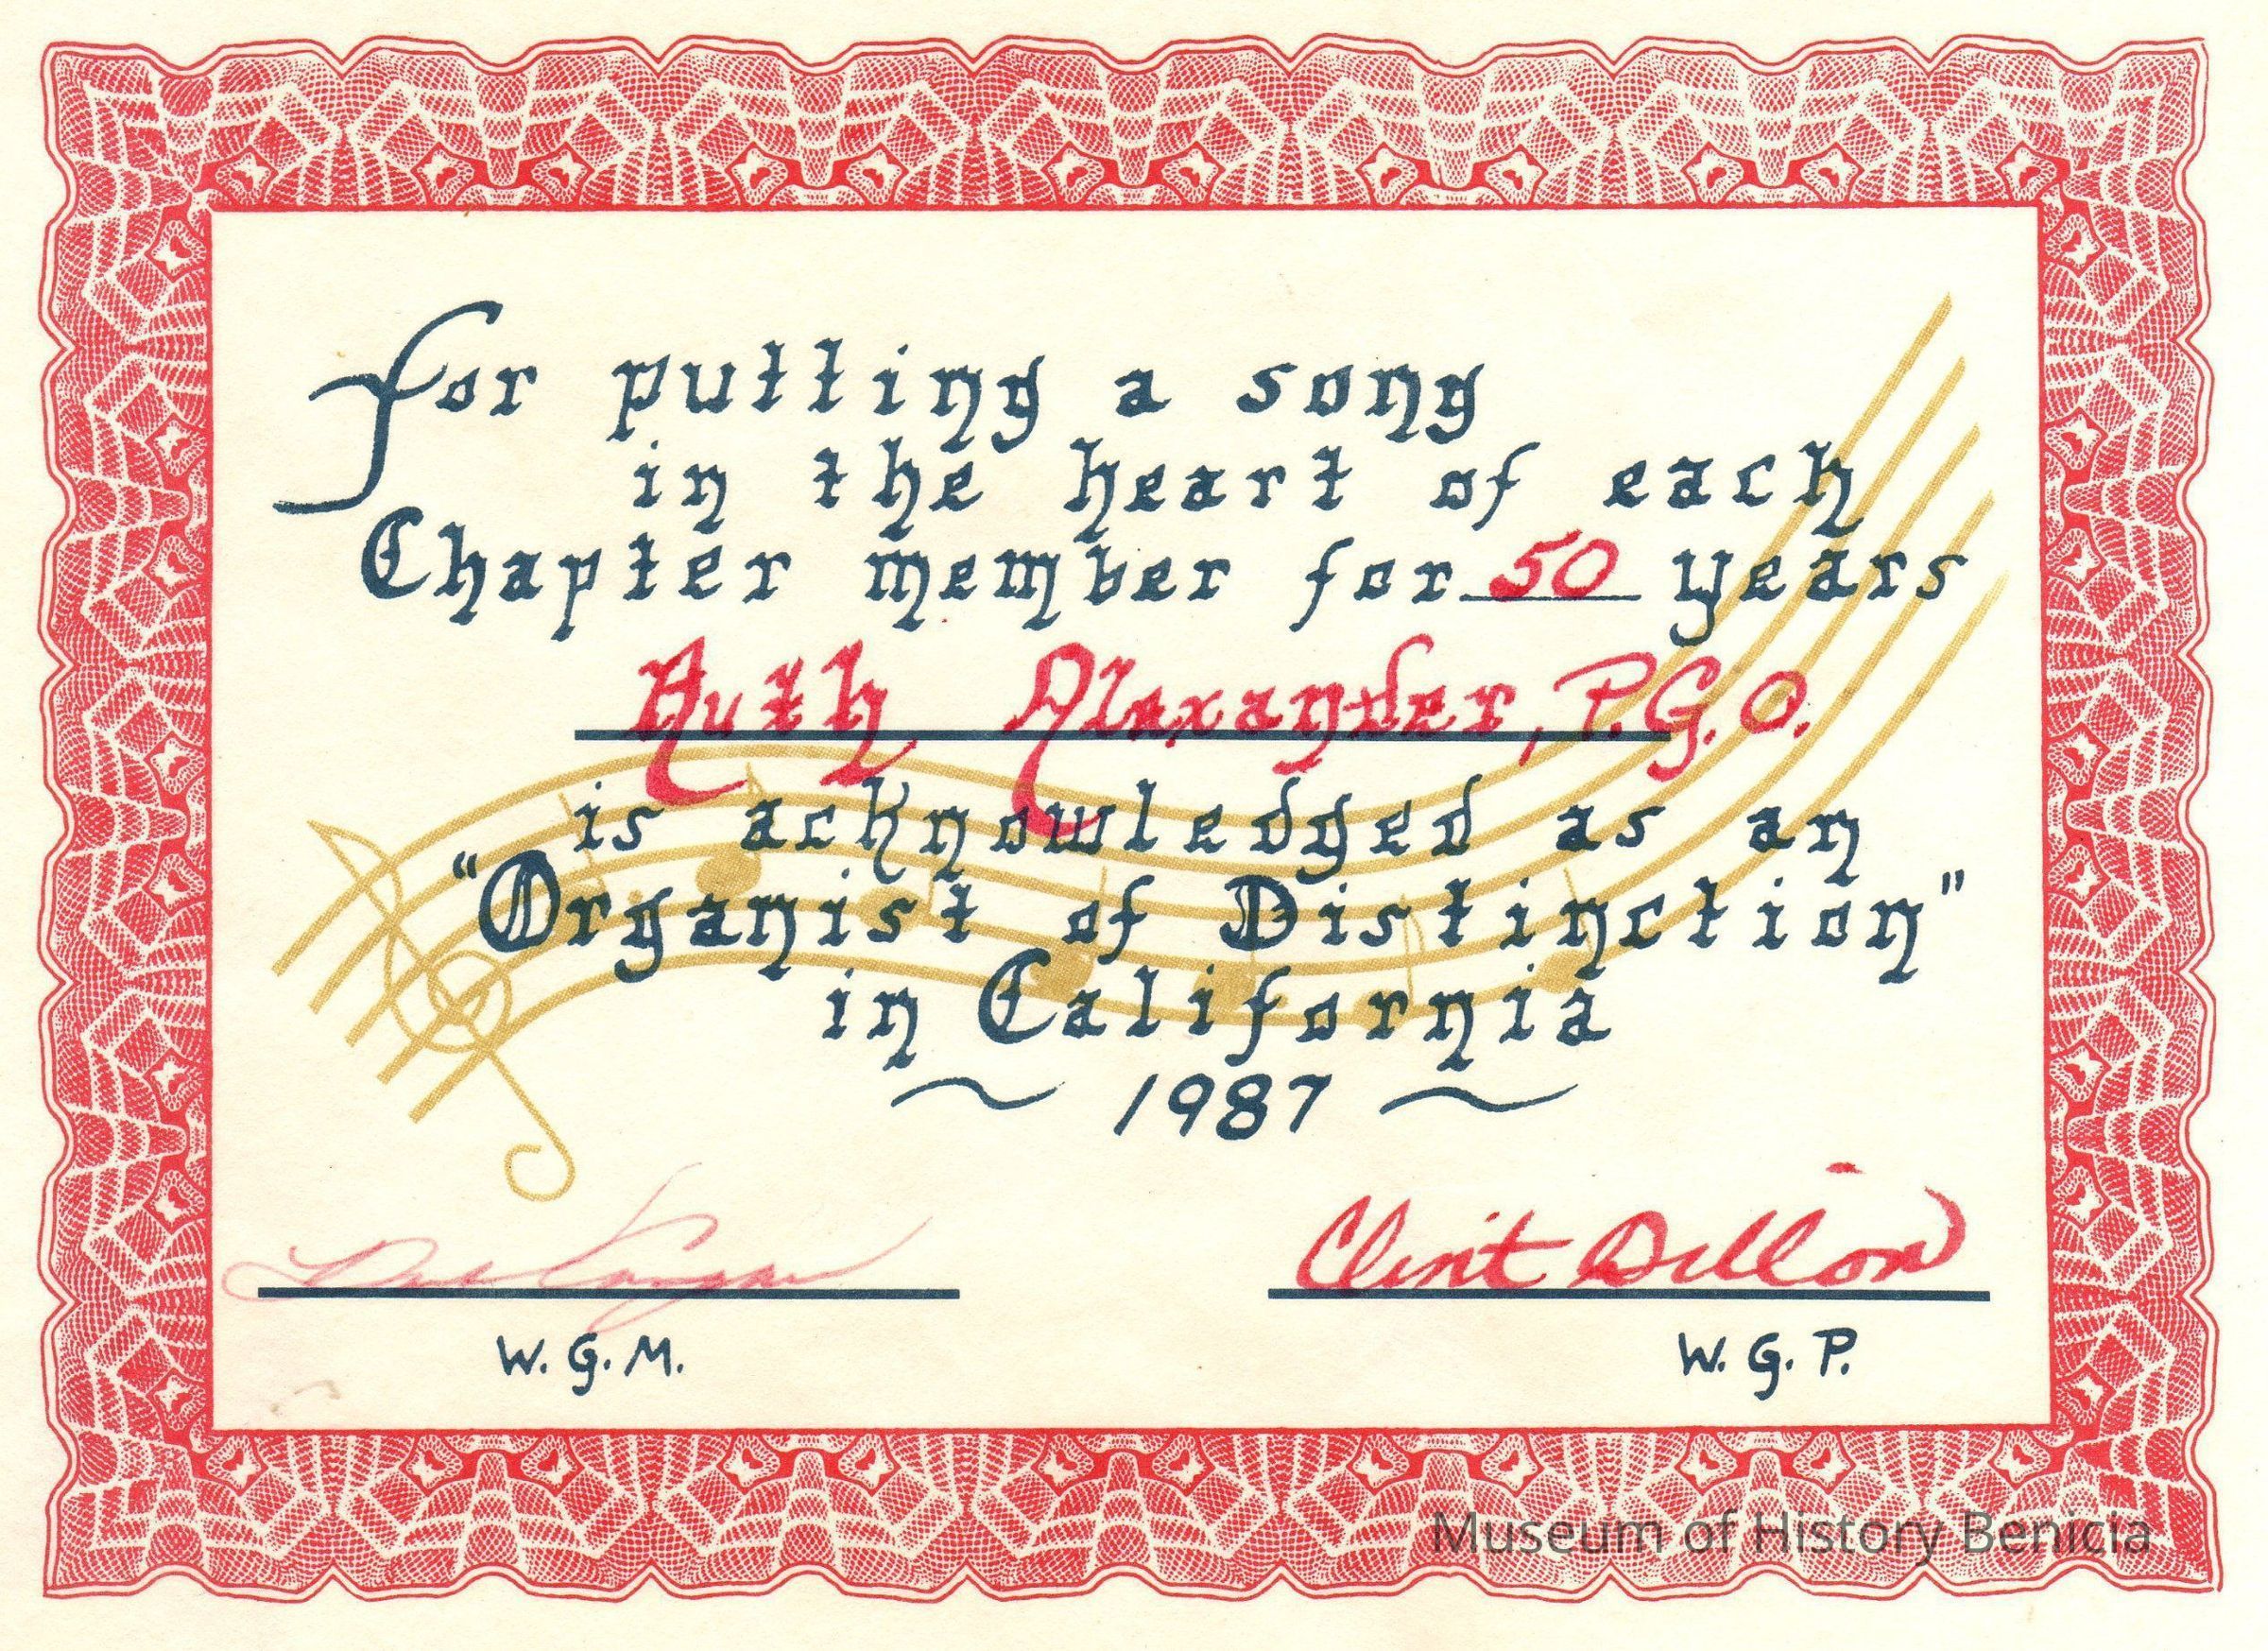 For putting a song
in the heart of each
Chapter member for 50 years
Ruth Alexander, P.G.O.
is acknowledged as an
"Organist of Distinction"
in California
~ 1987 ~
Clint Dillon
W. G. M.
W. G. P.
Museum of History Benicia